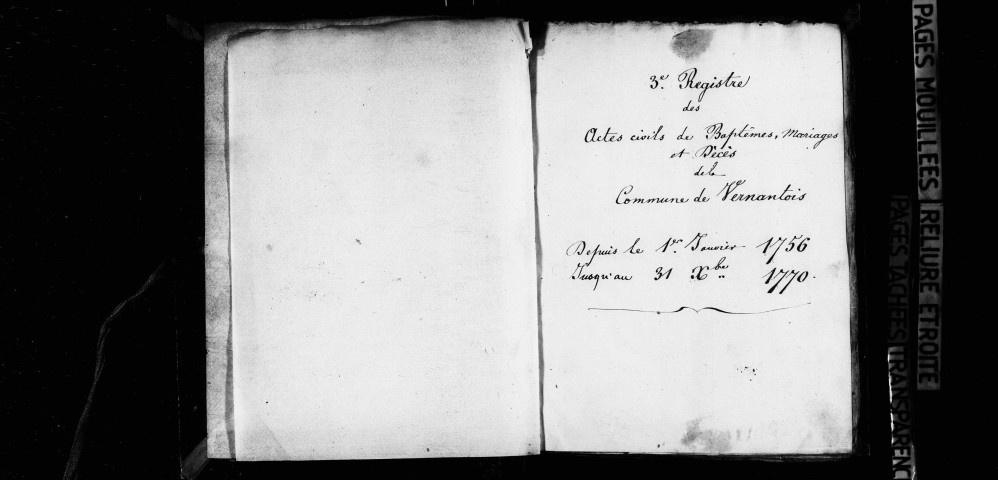 3e. Registre
des
Actes civils de Baptêmes, Mariages
et Décès
de la
Commune de Vernantois
Depuis le 1er. Janvier 1756
Jusqu'au 31 Xbre 1770.
PAGES MOUILLEES RELIURE ETROITE
PAGES TACHEES TRANSPAREN